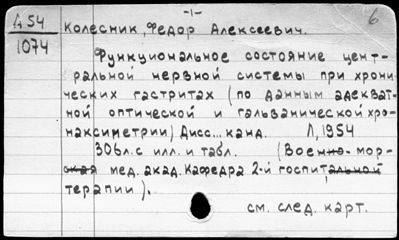 -1-
6
Д 54
1074
Колесник, Федор Алексеевич.
Функциональное состояние цент-
ральной нервной системы при хрони-
ческих гастритах (по данным адекват-
ной оптической и гальванической хро-
наксиметрии) Дисс... канд. Л, 1954
306л.с илл. и табл. (Военно-мор-
ская мед. акад. Кафедра 2-й госпитальной
терапии).
см. след. карт.